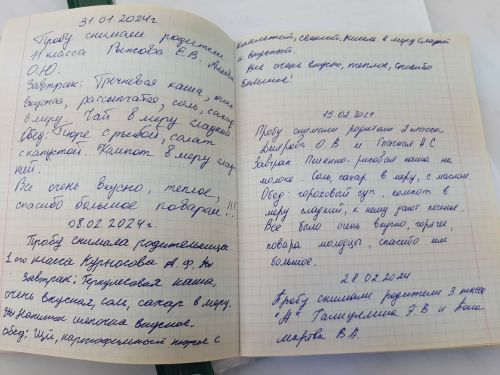 31.01.2024г
Пробу снимали родители
11 класса Рыжова Е.В.
О.Ю.
Завтрак: Гречневая каша, очень
вкусная, рассыпчатая, соль, сахар
в меру. Чай в меру сладкий
Обед: Пюре с рыбой, салат
с капустой. Компот в меру слад
кий.
Все очень вкусно, теплое,
спасибо большое поварам...!!!
08.02.2024г.
Пробу снимала родительница
1 ого класса Курносова А.Ф.
Завтрак: Геркулесовая каша,
очень вкусная, соль, сахар в меру.
Напиток шипочка вкусное.
обед: Щи, картофельный пюре с
котлетой, свеклой, кисель в меру сладкий
и вкусной.
Все очень вкусно, теплое, спасибо
большое!
15.02.2024
Пробу снимали родители 2 класса
О.В и Гласная Н.С
Завтрак Пшенно-рисовая каша на
молоке. Соль, сахар в меру, с маслом
Обед: гороховый суп, компот в
меру сладкий, к нему дают печенье.
Всё было очень вкусно, горячее,
повара молодцы, спасибо им
большое.
28.02.2024
Пробу снимали родители 3 класса
"А" Галиуллина Э.В и
В.А.